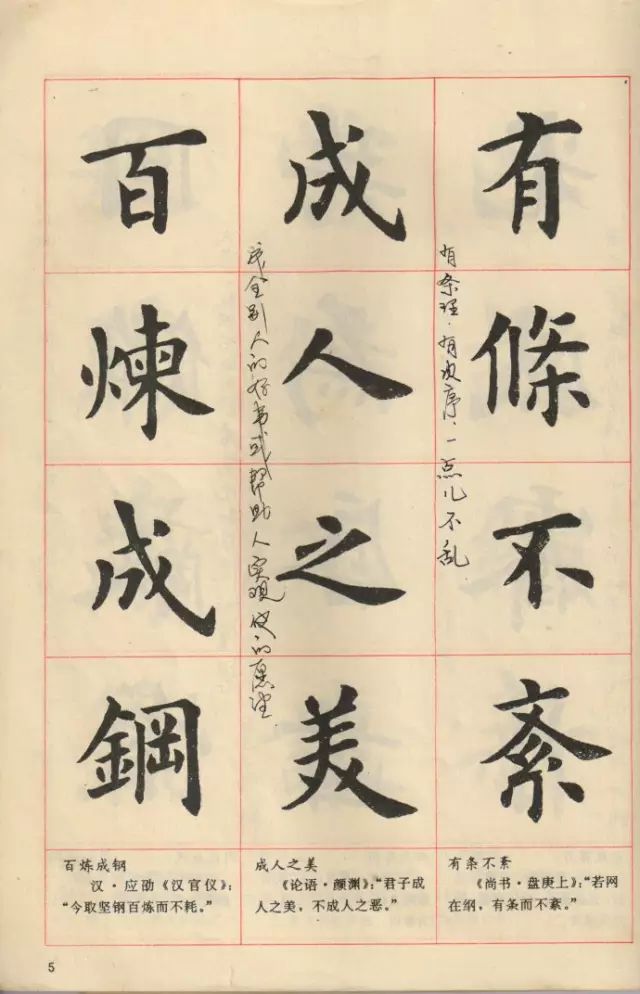 有條不紊
有条理.有次序.一点儿不乱
成人之美
成全别人的好事或帮助人实现他的愿望
百煉成鋼
有条不紊
《尚书·盘庚上》：“若网
在纲，有条而不紊。”
成人之美
《论语·颜渊》：“君子成
人之美，不成人之恶。”
百炼成钢
汉·应劭《汉官仪》：
“今取坚钢百炼而不耗。”
5